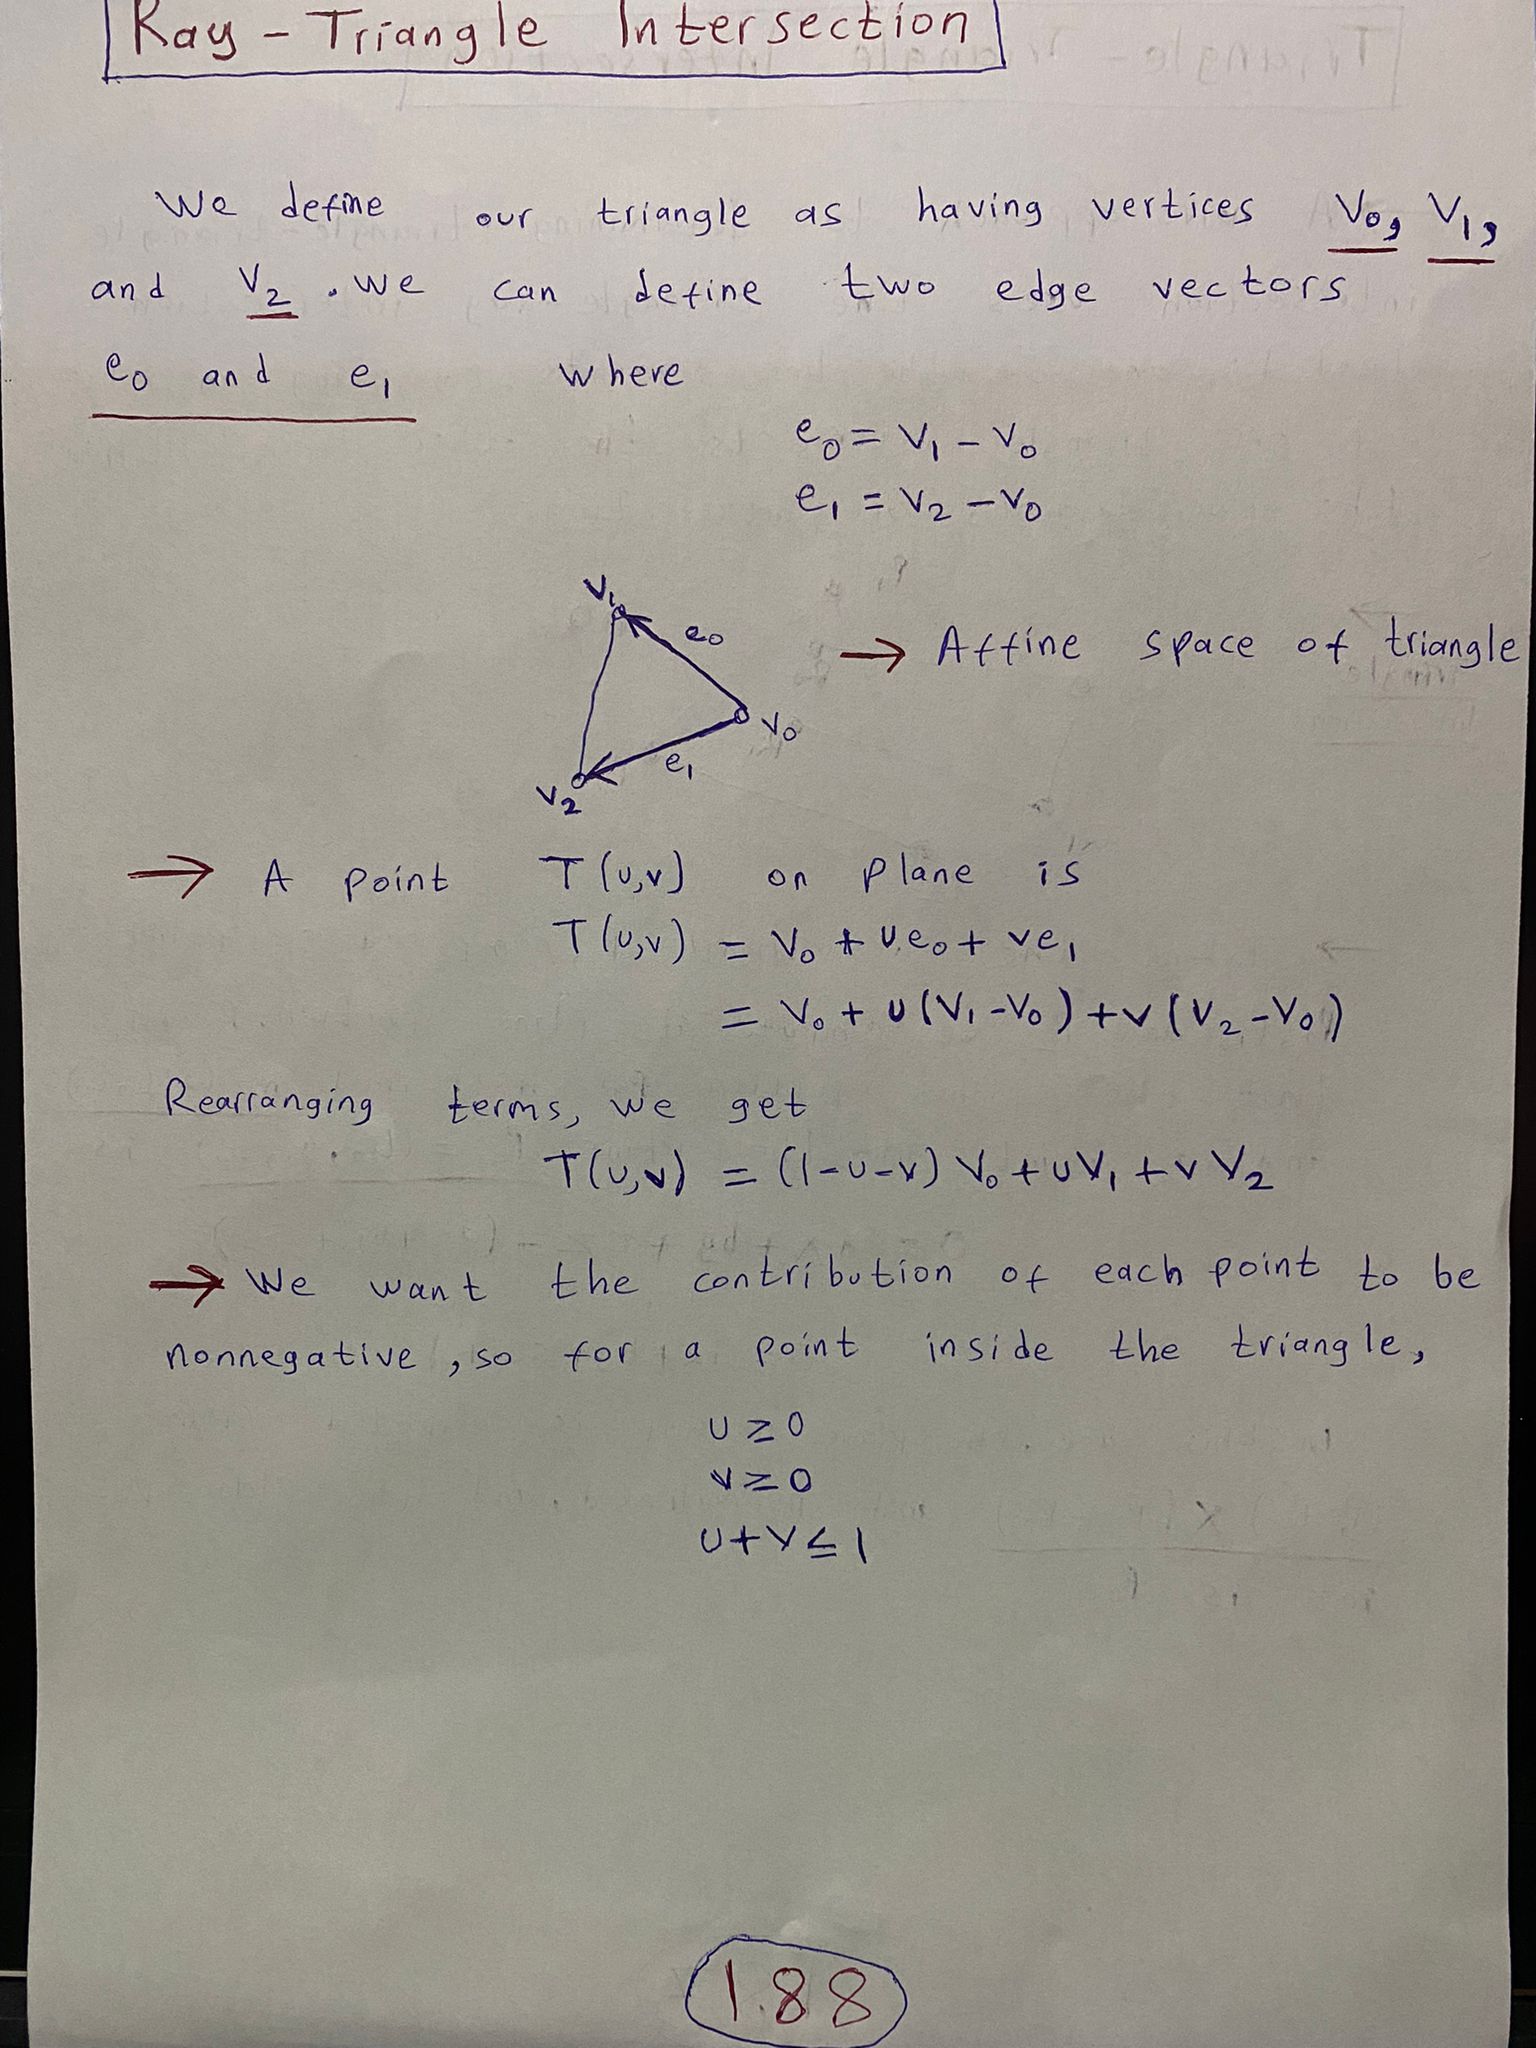 Ray - Triangle Intersection
We define our triangle as having vertices V₀, V₁,
and V₂. We can define two edge vectors
e₀ and e₁ where
e₀ = V₁ - V₀
e₁ = V₂ - V₀
V₁
e₀
→ Affine space of triangle
V₀
e₁
V₂
→ A point T(u,v) on plane is
T(u,v) = V₀ + ue₀ + ve₁
= V₀ + u(V₁ - V₀) + v(V₂ - V₀)
Rearranging terms, we get
T(u,v) = (1-u-v) V₀ + uV₁ + vV₂
→ We want the contribution of each point to be
nonnegative, so for a point inside the triangle,
u ≥ 0
v ≥ 0
u + v ≤ 1
188